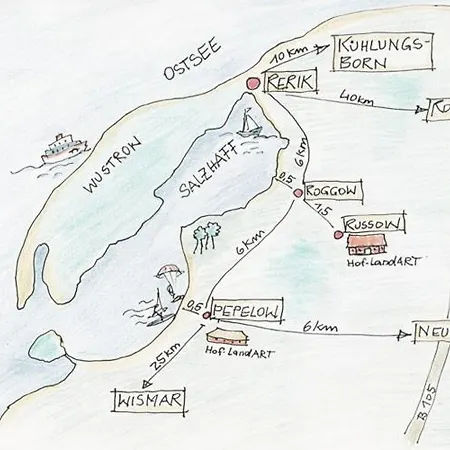 OSTSEE
10 Km
KÜHLUNGS-
BORN
RERIK
40 Km
RO
WUSTROW
SALZHAFF
6 Km
0,5
ROGGOW
1,5
RUSSOW
Hof-LandART
6 Km
0,5
PEPELOW
6 Km
NEU
Hof LandART
25 Km
WISMAR
B 105